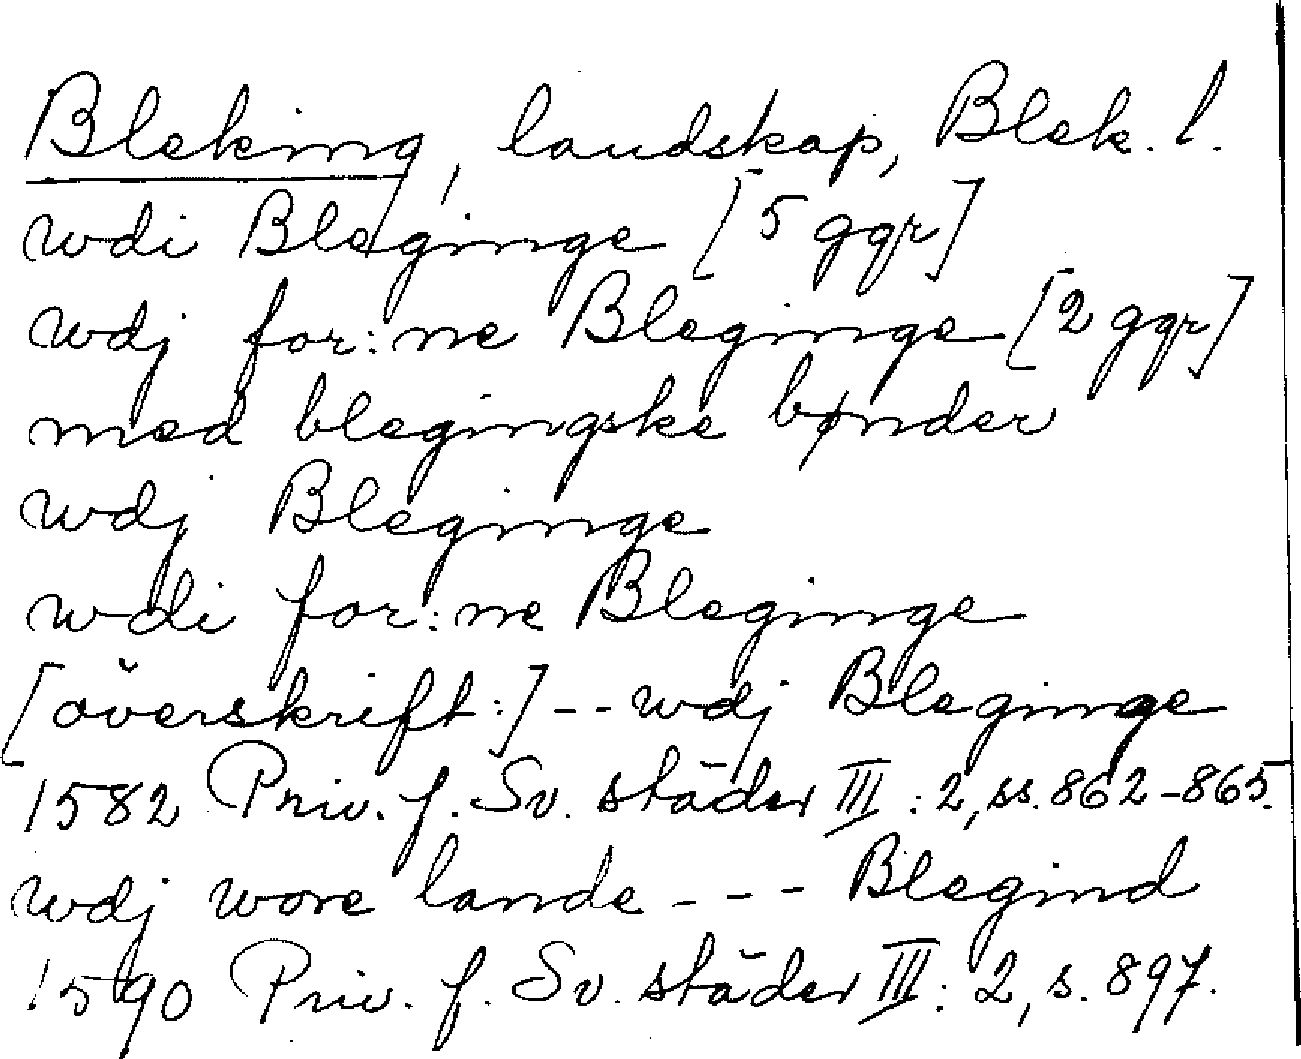 Bleking, landskap, Blek. l.
wdi Bleginge [5 ggr]
wdj for:ne Bleginge [2 ggr]
med blegingske bønder
wdj Bleginge
wdi for:ne Bleginge
[överskrift:] -- wdj Bleginge
1582 Priv. f. Sv. städer III: 2, ss. 862-865.
wdj wore lande --- Blegind
1590 Priv. f. Sv. städer III: 2, s. 897.